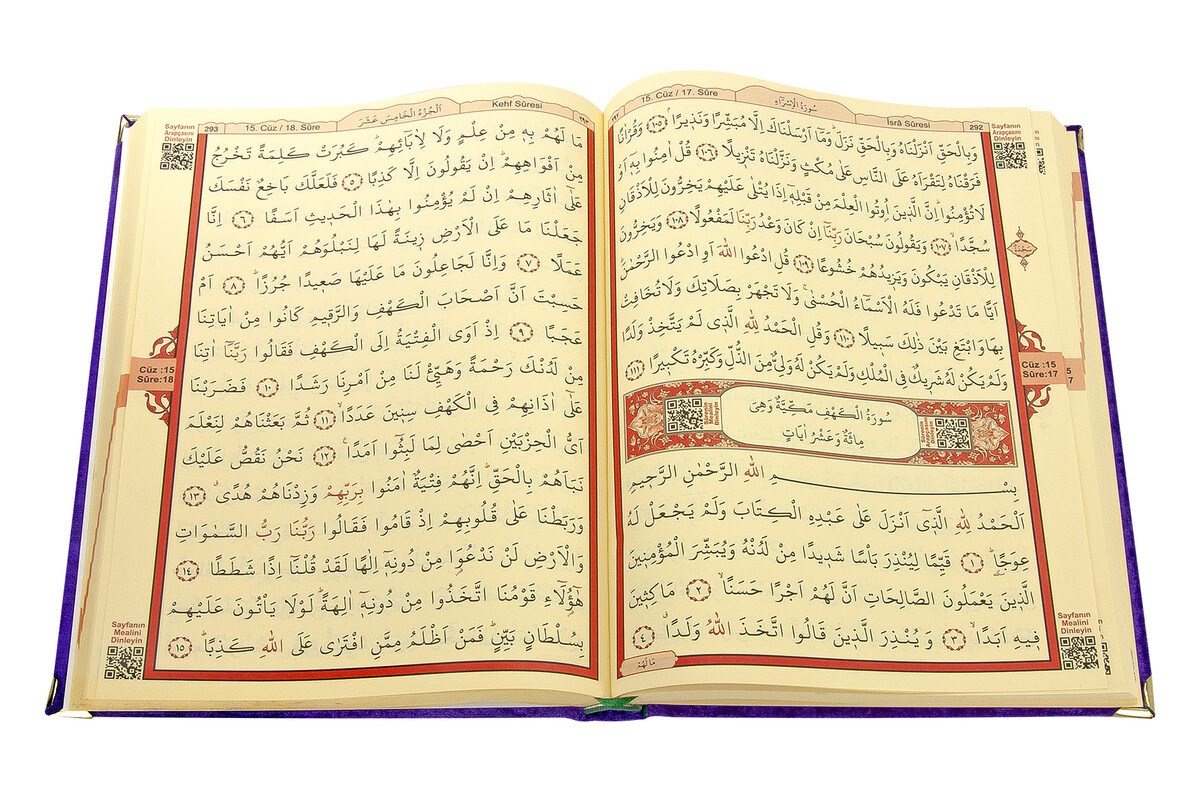 15. Cüz / 17. Sûre
سُورَةُ الْاِسْرَاءِ
İsrâ Sûresi
292
Sayfanın
Arapçasını
Dinleyin
وَبِالْحَقِّ اَنْزَلْنَاهُ وَبِالْحَقِّ نَزَلَۜ وَمَٓا اَرْسَلْنَاكَ اِلَّا مُبَشِّرًا وَنَذ۪يرًاۢ ﴿١٠٥﴾ وَقُرْاٰنًا
فَرَقْنَاهُ لِتَقْرَاَهُ عَلَى النَّاسِ عَلٰى مُكْثٍ وَنَزَّلْنَاهُ تَنْز۪يلًا ﴿١٠٦﴾ قُلْ اٰمِنُوا بِه۪ٓ اَوْ
لَا تُؤْمِنُواۜ اِنَّ الَّذ۪ينَ اُو۫تُوا الْعِلْمَ مِنْ قَبْلِه۪ٓ اِذَا يُتْلٰى عَلَيْهِمْ يَخِرُّونَ لِلْاَذْقَانِ
سُجَّدًاۙ ﴿١٠٧﴾ وَيَقُولُونَ سُبْحَانَ رَبِّنَٓا اِنْ كَانَ وَعْدُ رَبِّنَا لَمَفْعُولًا ﴿١٠٨﴾ وَيَخِرُّونَ
لِلْاَذْقَانِ يَبْكُونَ وَيَز۪يدُهُمْ خُشُوعًا ﴿١٠٩﴾ قُلِ ادْعُوا اللّٰهَ اَوِ ادْعُوا الرَّحْمٰنَۜ
اَيًّا مَا تَدْعُوا فَلَهُ الْاَسْمَٓاءُ الْحُسْنٰىۚ وَلَا تَجْهَرْ بِصَلَاتِكَ وَلَا تُخَافِتْ
بِهَا وَابْتَغِ بَيْنَ ذٰلِكَ سَب۪يلًا ﴿١١٠﴾ وَقُلِ الْحَمْدُ لِلّٰهِ الَّذ۪ي لَمْ يَتَّخِذْ وَلَدًا
وَلَمْ يَكُنْ لَهُ شَر۪يكٌ فِي الْمُلْكِ وَلَمْ يَكُنْ لَهُ وَلِيٌّ مِنَ الذُّلِّ وَكَبِّرْهُ تَكْب۪يرًا ﴿١١١﴾
سُورَةُ الْكَهْفِ مَكِّيَّةٌ وَهِيَ
مِائَةٌ وَعَشْرُ اٰيَاتٍ
بِسْمِ اللّٰهِ الرَّحْمٰنِ الرَّح۪يمِ
اَلْحَمْدُ لِلّٰهِ الَّذ۪ٓي اَنْزَلَ عَلٰى عَبْدِهِ الْكِتَابَ وَلَمْ يَجْعَلْ لَهُ
عِوَجًاۜ ﴿١﴾ قَيِّمًا لِيُنْذِرَ بَاْسًا شَد۪يدًا مِنْ لَدُنْهُ وَيُبَشِّرَ الْمُؤْمِن۪ينَ
الَّذ۪ينَ يَعْمَلُونَ الصَّالِحَاتِ اَنَّ لَهُمْ اَجْرًا حَسَنًاۙ ﴿٢﴾ مَاكِث۪ينَ
ف۪يهِ اَبَدًاۙ ﴿٣﴾ وَيُنْذِرَ الَّذ۪ينَ قَالُوا اتَّخَذَ اللّٰهُ وَلَدًاۗ ﴿٤﴾
مَا لَهُمْ
سَجْدَة
Cüz :15
Sûre:17
Sayfanın
Mealini
Dinleyin
Sayfanın
Arapçasını
Dinleyin
293
15. Cüz / 18. Sûre
اَلْجُزْءُ الْخَامِسَ عَشَرَ
Kehf Sûresi
مَا لَهُمْ بِه۪ مِنْ عِلْمٍ وَلَا لِاٰبَٓائِهِمْۜ كَبُرَتْ كَلِمَةً تَخْرُجُ
مِنْ اَفْوَاهِهِمْۜ اِنْ يَقُولُونَ اِلَّا كَذِبًا ﴿٥﴾ فَلَعَلَّكَ بَاخِعٌ نَفْسَكَ
عَلٰٓى اٰثَارِهِمْ اِنْ لَمْ يُؤْمِنُوا بِهٰذَا الْحَد۪يثِ اَسَفًا ﴿٦﴾ اِنَّا
جَعَلْنَا مَا عَلَى الْاَرْضِ ز۪ينَةً لَهَا لِنَبْلُوَهُمْ اَيُّهُمْ اَحْسَنُ
عَمَلًا ﴿٧﴾ وَاِنَّا لَجَاعِلُونَ مَا عَلَيْهَا صَع۪يدًا جُرُزًاۜ ﴿٨﴾ اَمْ
حَسِبْتَ اَنَّ اَصْحَابَ الْكَهْفِ وَالرَّق۪يمِ كَانُوا مِنْ اٰيَاتِنَا
عَجَبًا ﴿٩﴾ اِذْ اَوَى الْفِتْيَةُ اِلَى الْكَهْفِ فَقَالُوا رَبَّنَٓا اٰتِنَا
مِنْ لَدُنْكَ رَحْمَةً وَهَيِّئْ لَنَا مِنْ اَمْرِنَا رَشَدًا ﴿١٠﴾ فَضَرَبْنَا
عَلٰٓى اٰذَانِهِمْ فِي الْكَهْفِ سِن۪ينَ عَدَدًاۙ ﴿١١﴾ ثُمَّ بَعَثْنَاهُمْ لِنَعْلَمَ
اَيُّ الْحِزْبَيْنِ اَحْصٰى لِمَا لَبِثُٓوا اَمَدًا۟ ﴿١٢﴾ نَحْنُ نَقُصُّ عَلَيْكَ
نَبَاَهُمْ بِالْحَقِّۜ اِنَّهُمْ فِتْيَةٌ اٰمَنُوا بِرَبِّهِمْ وَزِدْنَاهُمْ هُدًىۗ ﴿١٣﴾
وَرَبَطْنَا عَلٰى قُلُوبِهِمْ اِذْ قَامُوا فَقَالُوا رَبُّنَا رَبُّ السَّمٰوَاتِ
وَالْاَرْضِ لَنْ نَدْعُوَا۬ مِنْ دُونِه۪ٓ اِلٰهًا لَقَدْ قُلْنَٓا اِذًا شَطَطًا ﴿١٤﴾
هٰٓؤُ۬لَٓاءِ قَوْمُنَا اتَّخَذُوا مِنْ دُونِه۪ٓ اٰلِهَةًۜ لَوْلَا يَاْتُونَ عَلَيْهِمْ
بِسُلْطَانٍ بَيِّنٍۜ فَمَنْ اَظْلَمُ مِمَّنِ افْتَرٰى عَلَى اللّٰهِ كَذِبًاۜ ﴿١٥﴾
Cüz :15
Sûre:18
Sayfanın
Mealini
Dinleyin